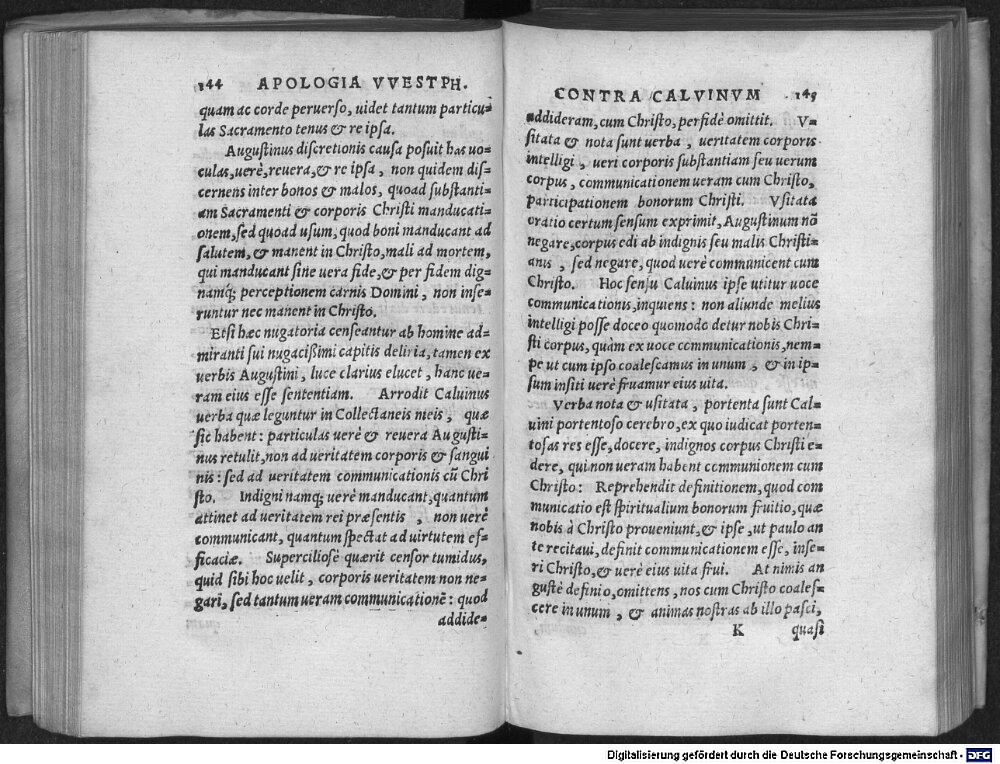 144 APOLOGIA VVESTPH.
quam ac corde peruerso, uidet tantum particu⸗
las Sacramento tenus & re ipsa.
Augustinus discretionis causa posuit has uo⸗
culas, uerè, reuera, & re ipsa, non quidem dis⸗
cernens inter bonos & malos, quoad substanti⸗
am Sacramenti & corporis Christi manducati⸗
onem, sed quoad usum, quod boni manducant ad
salutem, & manent in Christo, mali ad mortem,
qui manducant sine uera fide, & per fidem dig⸗
namq́; perceptionem carnis Domini, non inse⸗
runtur nec manent in Christo.
Etsi hæc nugatoria censeantur ab homine ad⸗
miranti sui nugacißimi capitis deliria, tamen ex
uerbis Augustini, luce clarius elucet, hanc ue⸗
ram eius esse sententiam. Arrodit Caluinus
uerba quæ leguntur in Collectaneis meis, quæ
sic habent: particulas uerè & reuera Augusti⸗
nus retulit, non ad ueritatem corporis & sangui
nis: sed ad ueritatem communicationis cū Chri
sto. Indigni namq; uerè manducant, quantum
attinet ad ueritatem rei præsentis, non uerè
communicant, quantum spectat ad uirtutem ef⸗
ficaciæ. Superciliosè quærit censor tumidus,
quid sibi hoc uelit, corporis ueritatem non ne⸗
gari, sed tantum ueram communicationē: quod
addide⸗
CONTRA CALVINVM 145
addideram, cum Christo, perfidè omittit. V⸗
sitata & nota sunt uerba, ueritatem corporis
intelligi, ueri corporis substantiam seu uerum
corpus, communicationem ueram cum Christo,
participationem bonorum Christi. Vsitata
oratio certum sensum exprimit, Augustinum nō
negare, corpus edi ab indignis seu malis Christi⸗
anis, sed negare, quod uerè communicent cum
Christo. Hoc sensu Caluinus ipse utitur uoce
communicationis, inquiens: non aliunde melius
intelligi posse doceo quomodo detur nobis Chri⸗
sti corpus, quàm ex uoce communicationis, nem⸗
pe ut cum ipso coalescamus in unum, & in ip⸗
sum insiti uerè fruamur eius uita.
Verba nota & usitata, portenta sunt Cal⸗
uini portentoso cerebro, ex quo iudicat porten⸗
tosas res esse, docere, indignos corpus Christi e⸗
dere, qui non ueram habent communionem cum
Christo: Reprehendit definitionem, quod com
municatio est spiritualium bonorum fruitio, quæ
nobis à Christo proueniunt, & ipse, ut paulo an
te recitaui, definit communicationem esse, inse⸗
ri Christo, & uerè eius uita frui. At nimis an
gustè definio, omittens, nos cum Christo coales⸗
cere in unum, & animas nostras ab illo pasci,
K quasi
Digitalisierung gefördert durch die Deutsche Forschungsgemeinschaft - DFG